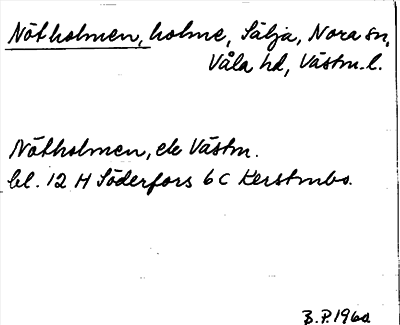 Nötholmen, holme, Sälja, Nora sn,
Våla hd, Västm. l.
Nötholmen, ek Västm.
bl. 12 H Söderfors 6 C Kerstinbo.
B.P. 1960